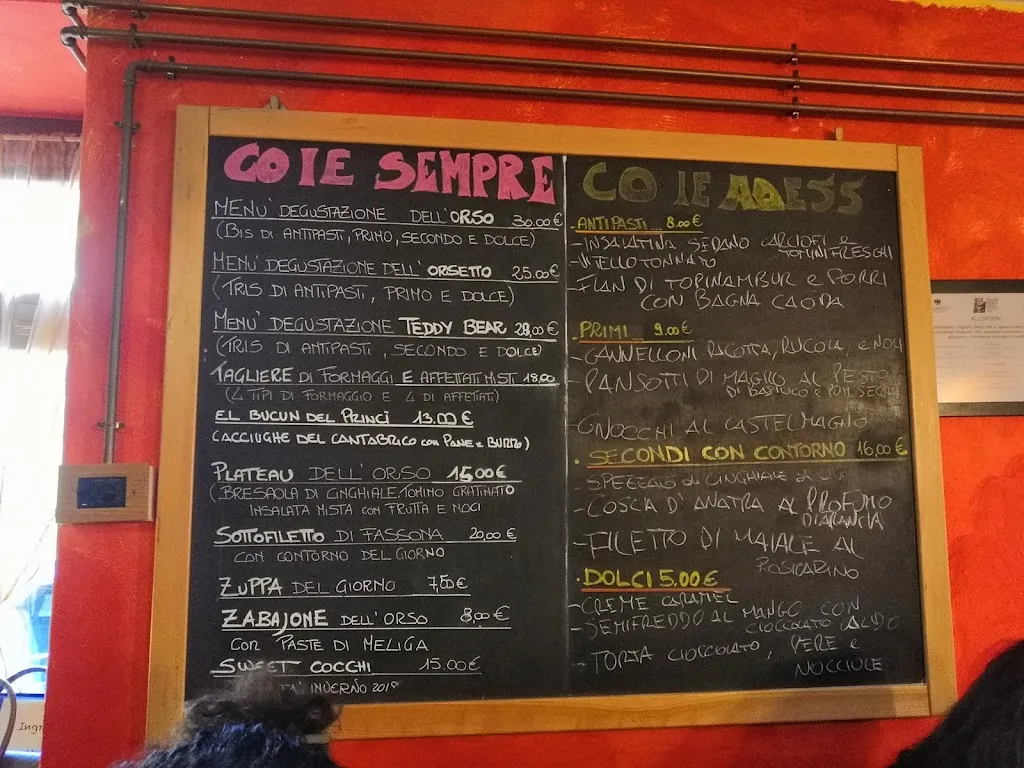 CO IE SEMPRE
MENU' DEGUSTAZIONE DELL'ORSO 30.00€
(BIS DI ANTIPASTI, PRIMO, SECONDO E DOLCE)
MENU' DEGUSTAZIONE DELL'ORSETTO 25.00€
(TRIS DI ANTIPASTI, PRIMO E DOLCE)
MENU' DEGUSTAZIONE TEDDY BEAR 28,00€
(TRIS DI ANTIPASTI, SECONDO E DOLCE)
TAGLIERE DI FORMAGGI E AFFETTATI MISTI 18,00
(4 TIPI DI FORMAGGIO E 4 DI AFFETTATI)
EL BUCUN DEL PRINCI 13.00€
(ACCIUGHE DEL CANTABRICO CON PANE E BURRO)
PLATEAU DELL'ORSO 15,00€
(BRESAOLA DI CINGHIALE, TOMINO GRATINATO
INSALATA MISTA CON FRUTTA E NOCI
SOTTOFILETTO DI FASSONA 20,00€
CON CONTORNO DEL GIORNO
ZUPPA DEL GIORNO 7,50€
ZABAJONE DELL'ORSO 8,00€
CON PASTE DI MELIGA
SWEET COCCHI 15.00€
INVERNO
CO IE ADESS
ANTIPASTI 8.00€
- INSALATINA SEDANO CARCIOFI E
TOMINI FRESCHI
- VITELLO TONNATO
- FLAN DI TOPINAMBUR E PORRI
CON BAGNA CAODA
PRIMI 9.00€
- CANNELLONI RICOTTA, RUCOLA, E NOCI
- PANSOTTI DI MAGRO AL PESTO
DI BASILICO E POM. SECCHI
- GNOCCHI AL CASTELMAGNO
SECONDI CON CONTORNO 16,00€
- DI CINGHIALE
- COSCIA D'ANATRA AL PROFUMO
D'ARANCIA
- FILETTO DI MAIALE AL
ROSMARINO
DOLCI 5.00€
- CREME CARAMEL
- SEMIFREDDO AL MANGO CON
CIOCCOLATO CALDO
- TORTA CIOCCOLATO, PERE E
NOCCIOLE
ALLERGENI